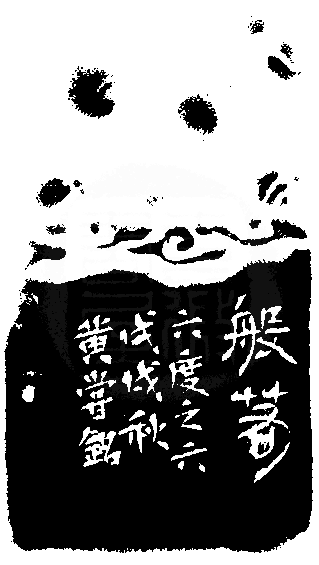 般若
六度之六
戊戌秋
黃嘗銘